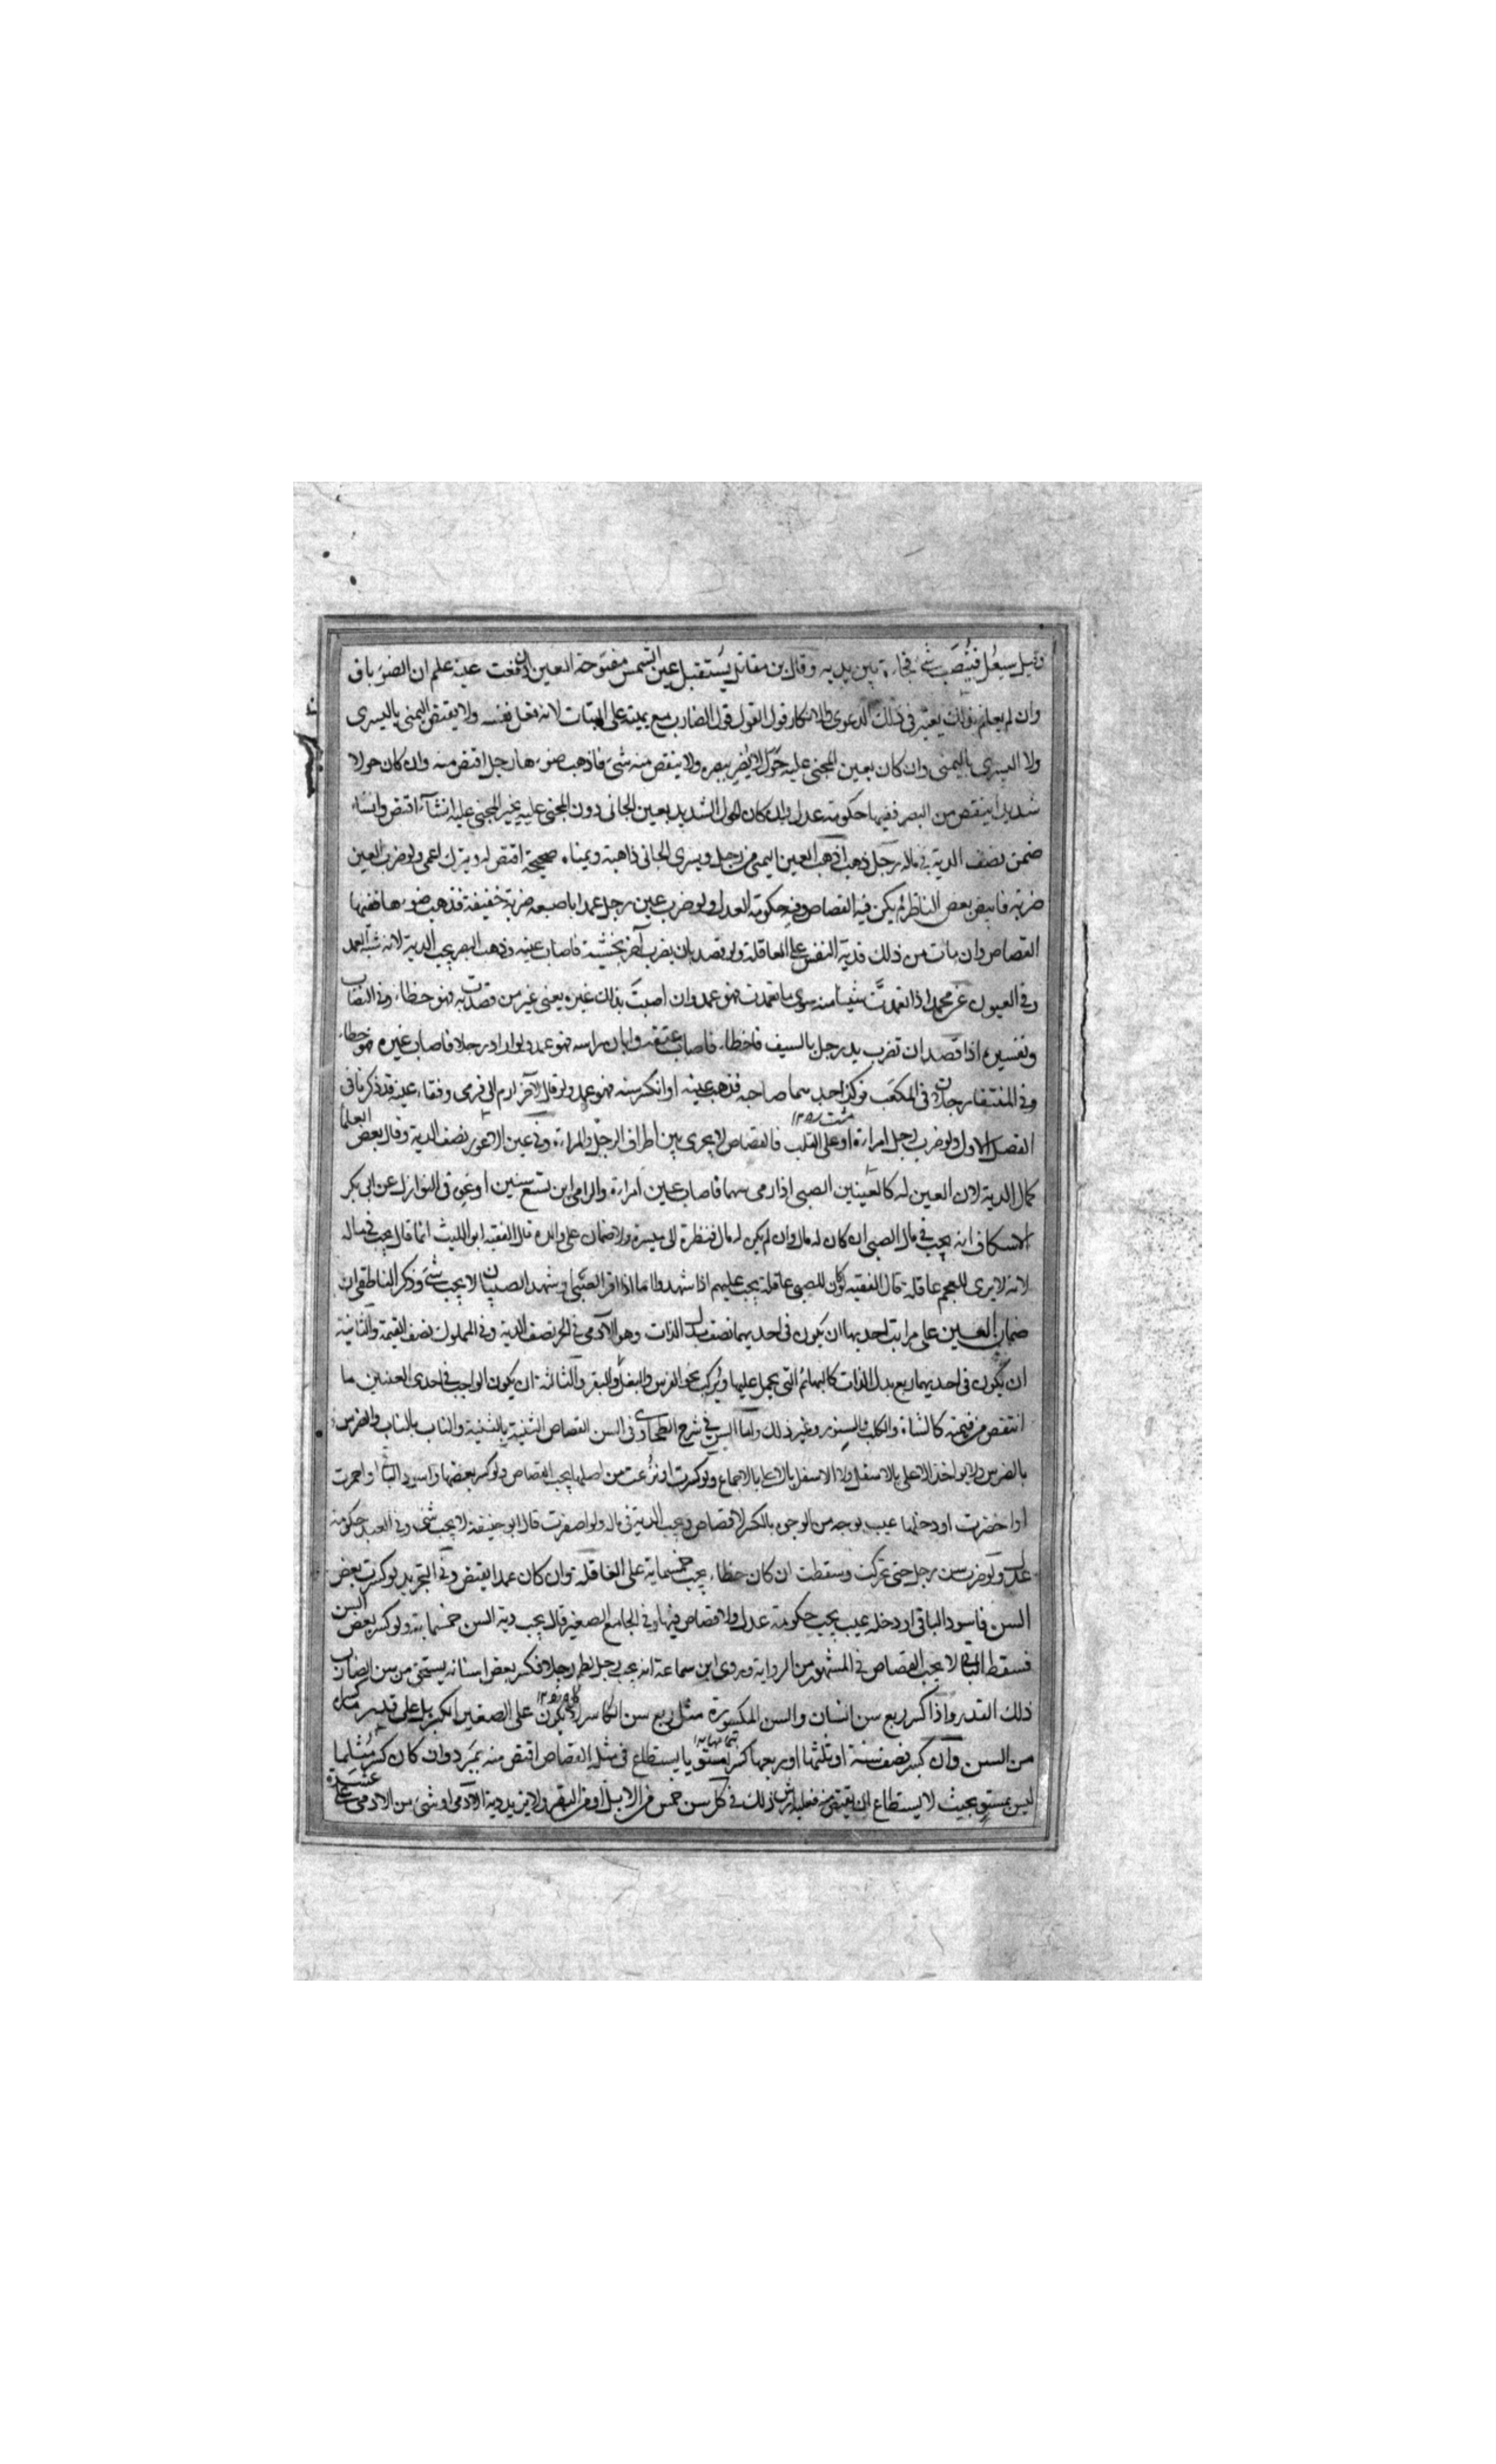 وقيل سيفعل فينصب شئ فجاءة بين يديه وقال بن مقاتل يستقبل عين الشمس مفتوحة العين ان دمعت عينه علم ان الضوء باق
وان لم يعلم بذلك يعتبر في ذلك الدعوى والانكار قول القول قول الضارب مع يمينه على البتات لانه فعل نفسه ولا يقتص اليمنى باليسرى
ولا اليسرى باليمنى وان كان بعين المجنى عليه حول لا يضر ببصره ولا ينقص منه شئ فاذهب ضوءها رجل اقتص منه وان كان حولا
شديدا ينقص من البصر ففيها حكومة عدل وان كان الحول الشديد بعين الجانى دون المجنى عليه يخير المجنى عليه ان شآء اقتص وان شاء
ضمن نصف الدية في ماله رجل ذهب اذهب العين اليمنى من رجل ويسرى الجانى ذاهبة ويمناه صحيحة اقتص له ويترك اعمى ولو ضرب العين
ضربة فابيض بعض الناظر لم يكن فيه القصاص وفيه حكومة العدل ولو ضرب عين رجل عمدا باصبعه ضربة خفيفة فذهب ضوءها ففيها
القصاص وان مات من ذلك فدية النفس على العاقلة ولو قصد بان يضرب آخر بخشبة فاصاب عينه وذهب البصر يجب الدية لانه شبه العمد
وفي العيون عن محمد اذا تعمدت شيئا منه سوى ما تعمدت فهو عمد وان اصبت بذلك غيره يعني غير من قصدت به فهو خطاء وفي النصاب
وتفسيره اذا قصد ان تضرب يد رجل بالسيف فاخطاء فاصاب عنقه وابان راسه فهو عمد ولو اراد رجلا فاصاب غيره فهو خطاء
وفي المنتقى رجلان في المكعب فوكز احدهما صاحبه فذهب عينه او انكسر سنه فهو عمد ولو قال الآخر ارم الي فرمى وفقاء عينه قد ذكرنا في
الفصل الاول ولو ضرب رجل امراءة او على القلب فالقصاص لا يجرى بين اطراف الرجل والمراءة وفي عين الاعور نصف الدية وقال بعض العلما
كمال الدية لان العين له كالعينين الصبى اذا رمى سهما فاصاب عين امراءة والرامى ابن تسع سنين او نحوه في النوازل عن ابى بكر
الاسكاف انه يجب في مال الصبى ان كان له مال وان لم يكن له مال فنظرة الى ميسرة ولا ضمان على والده قال الفقيه ابو الليث انما قال يجب في ماله
لانه لا يرى للعجم عاقلة قال الفقيه لو كان للصبى عاقلة يجب عليهم اذا شهدوا اما اذا اقر الصبى او شهد الصبيان لا يجب شئ وذكر الناطقى ان
ضمان العين على مراتب احديها ان يكون في احديهما نصف بدل الذات وهو الآدمى في الحر نصف الدية وفي المملوك نصف القيمة والثانية
ان يكون في احديهما ربع بدل الذات كالبهائم التى يحمل عليها ويركب نحو الفرس والبغل والبقر والثالثة ان يكون الواجب في احدى العينين ما
انتقص من قيمته كالشاة والكلب والسنور وغير ذلك واما السن في شرح الطحاوى في السن القصاص الثنية بالثنية والناب بالناب والضرس
بالضرس ولا يواخذ الاعلى بالاسفل ولا الاسفل بالاعلى بالاجماع ولو كسرت او نزعت من اصلها يجب القصاص ولو كسر بعضها واسود الباقى او احمرت
او اخضرت او دخلها عيب بوجه من الوجوه بالكسر لا قصاص ويجب الدية في ماله ولو اصفرت قال ابو حنيفة لا يجب شئ وفي العبد حكومة
عدل ولو ضرب سن رجل حتى تحركت وسقطت ان كان خطاء يجب خمسماية على العاقلة وان كان عمدا يقتص وفي التجريد لو كسرت بعض
السن فاسود الباقى او دخله عيب يجب حكومة عدل ولا قصاص فيها وفي الجامع الصغير قال يجب دية السن خمسماية ولو كسر بعض السن
فسقط الباقى لا يجب القصاص في المشهور من الرواية وروى ابن سماعة انه يجب رجل لطم رجلا فكسر بعض اسنانه يستحق من سن الضارب
ذلك القدر واذا كسر ربع سن انسان والسن المكسورة مثل ربع سن الكاسر لا يكون على الصغير الكبير بل على قدر ما كسر
من السن وان كسر نصف سنه او ثلثها او ربعها كسرا مستويا يستطاع في مثله القصاص اقتص منه بمبرد وان كان كسر مثلما
ليس بمستو بحيث لا يستطاع ان يقتص منه فعليه ارش ذلك في كل سن خمس من الابل او من البقر ولا يزيد دية الآدمى او شئ من الادمى على عشرة